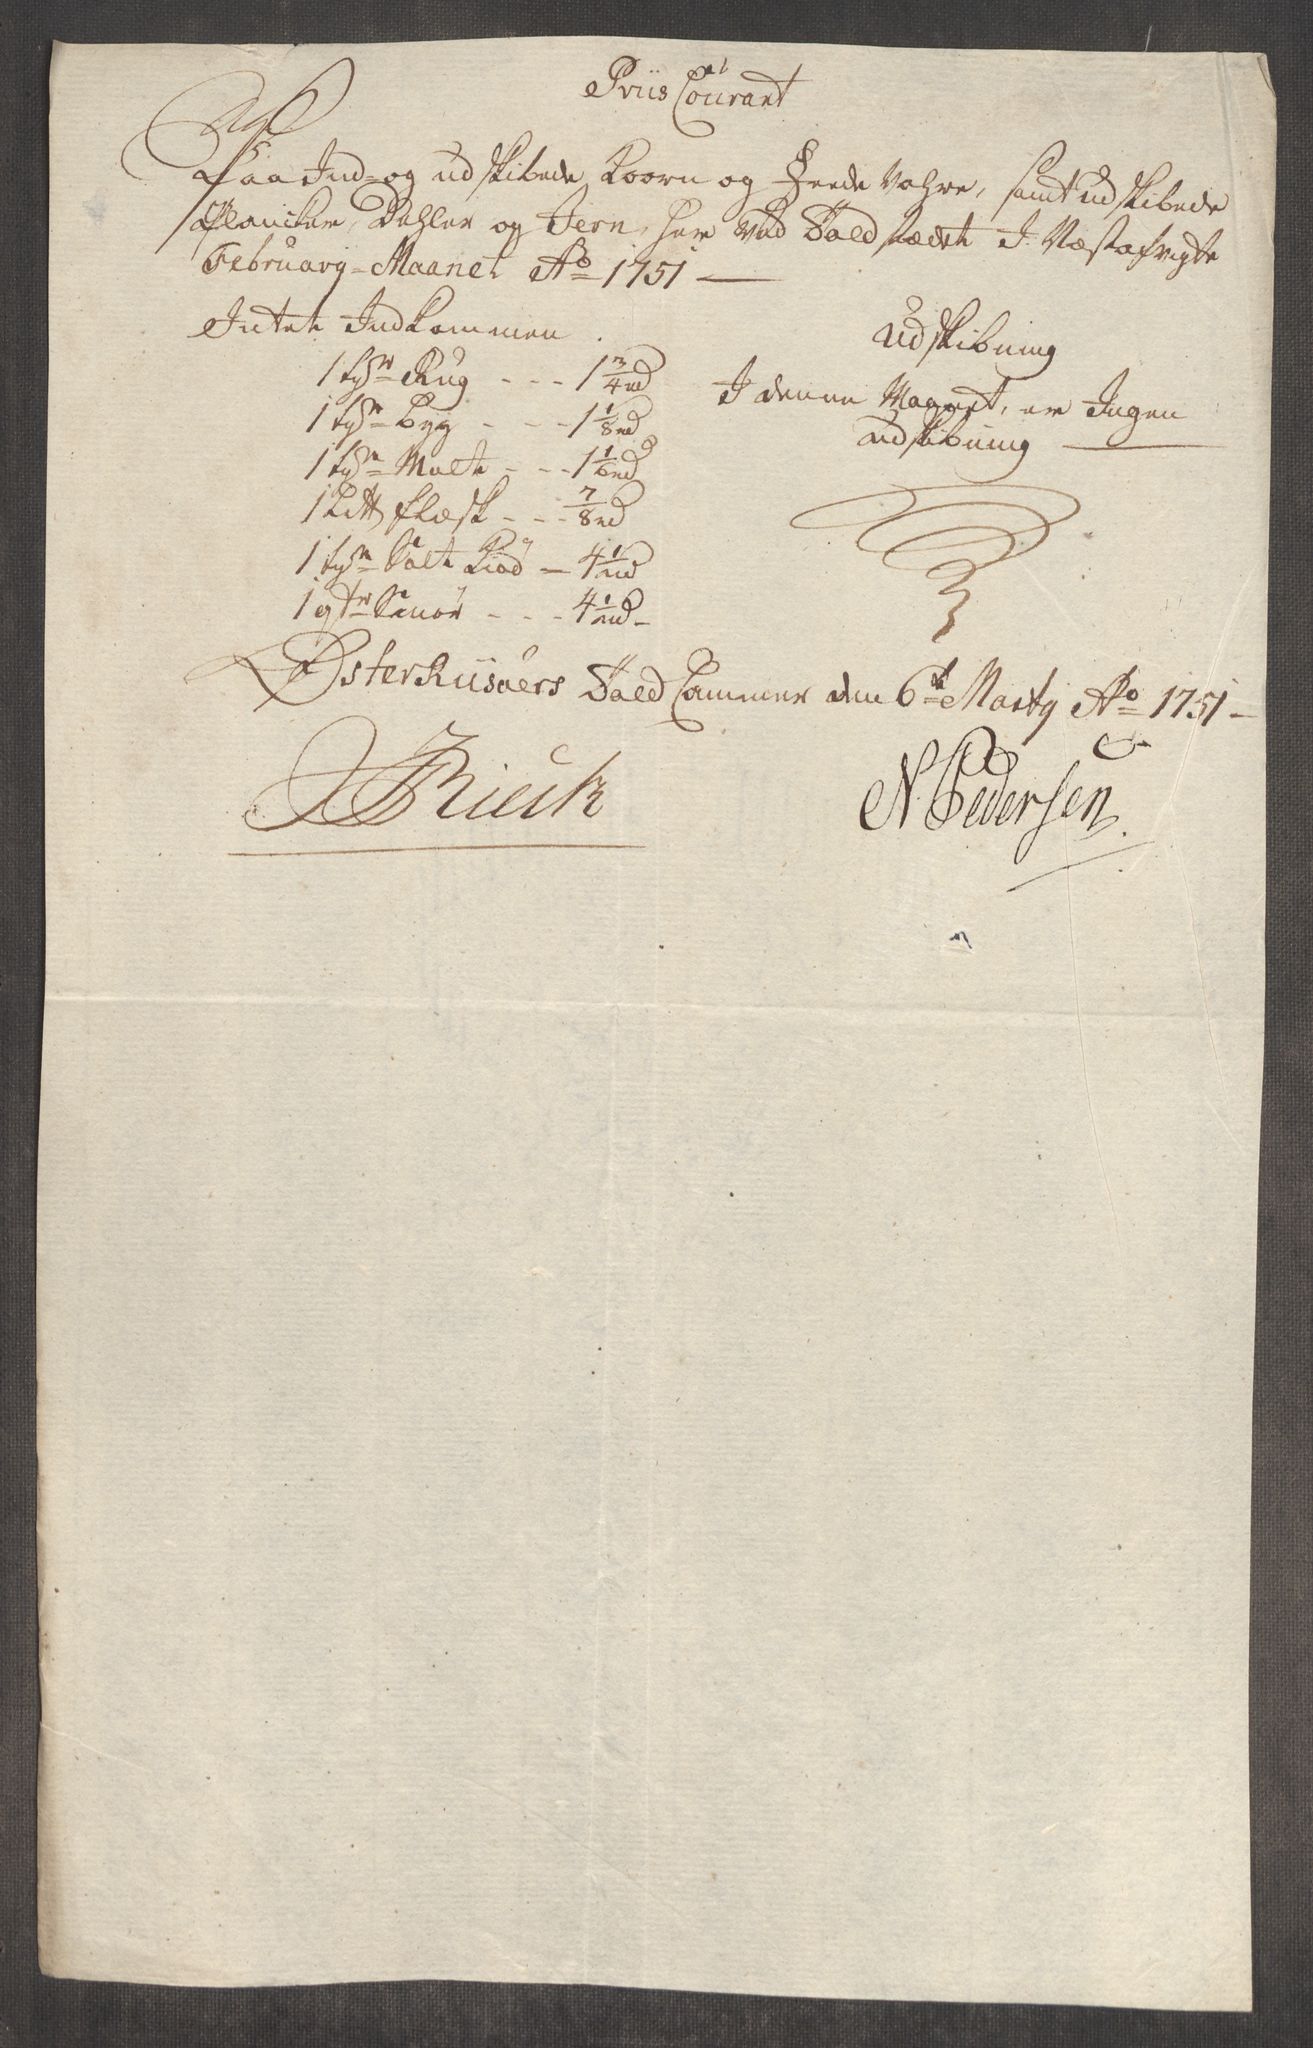 Priis Courant
Paa Ind- og udskibede Koorn og Feede Vahre, samt udskibede
Plancker, Dehler og Jern, her ved Toldstædet I Næstafvigte
February-Maanet Ao 1751
Intet Indkommen
1 tdr Rug - - - 1 3/4 rd
1 tdr Byg - - - 1 1/8 rd
1 tdr Malt - - - 1 1/6 rd
1 Litt flæsk - - - 7/8 rd
1 tdr Salt Kiød - 4 1/2 rd
1 qtr Smør - - - 4 1/2 rd
Udskibning
I denne Maanet, er Ingen
udskibning
Østerriisøers Told Cammer den 6te Marty Ao 1751
Rieck
N. Pedersen